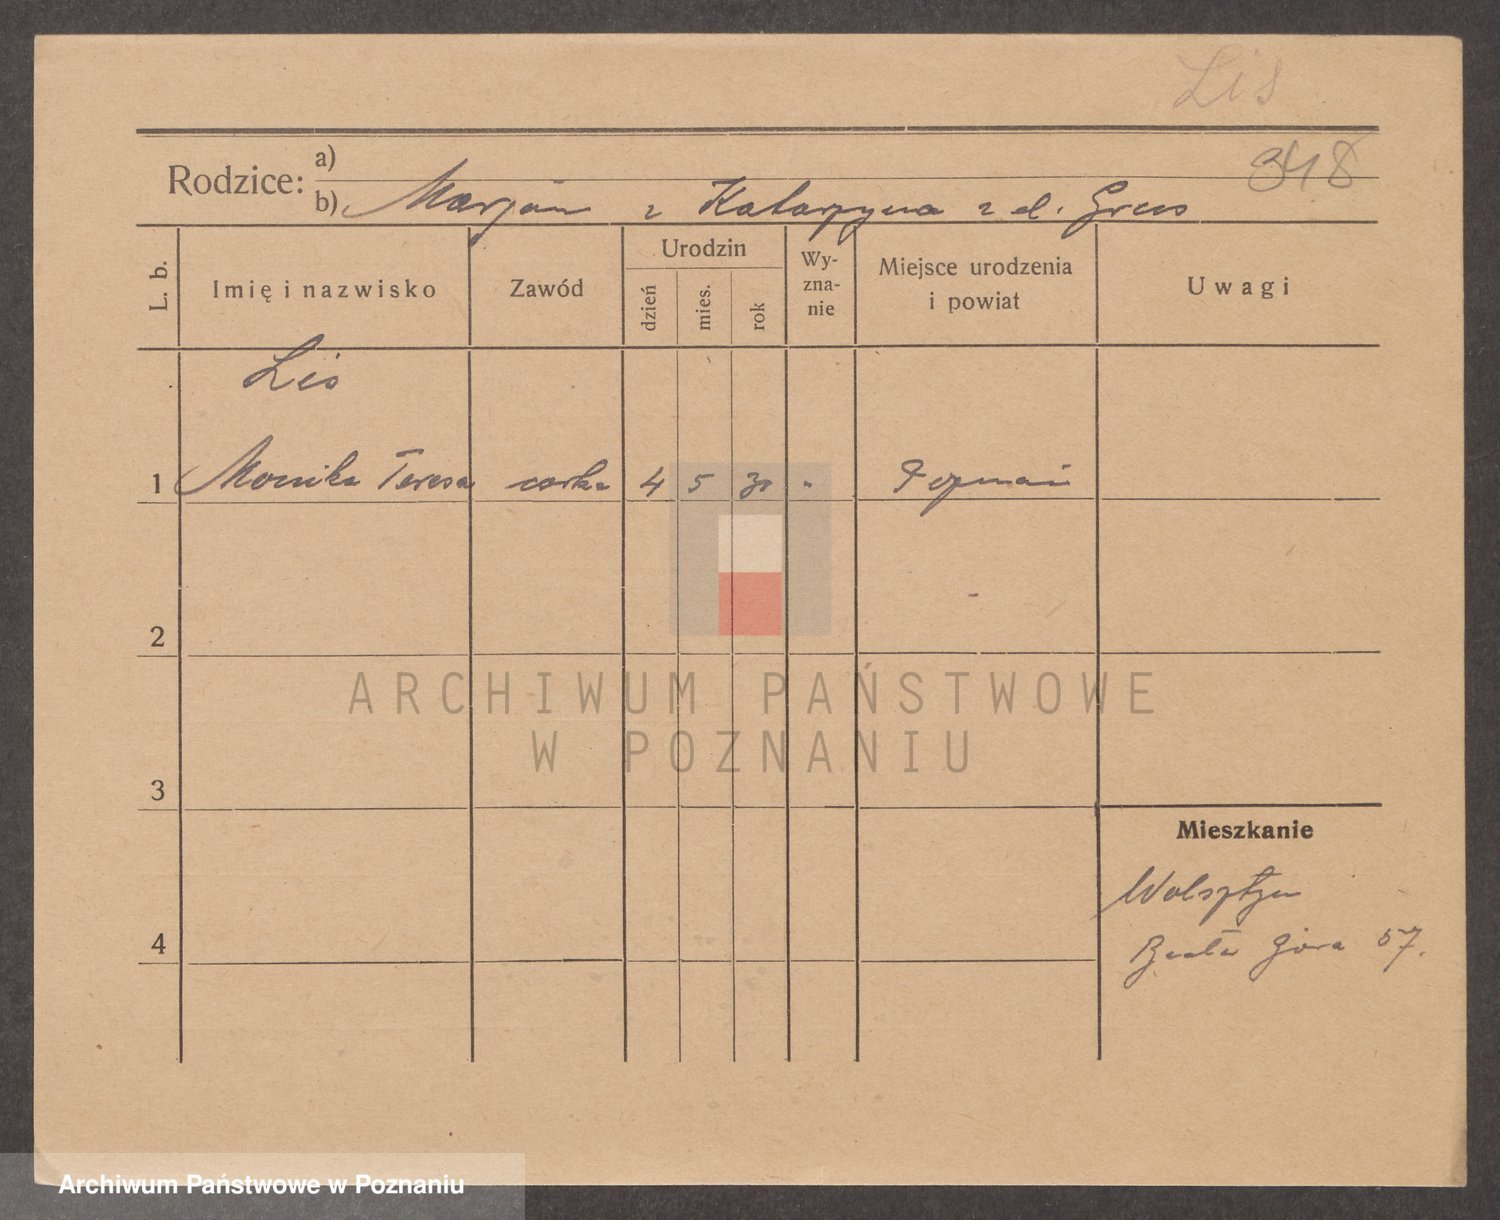 Lis
348
Rodzice: a)
b) Marjan i Katarzyna z d. Greus
L. b.
Imię i nazwisko
Zawód
Urodzin
dzień
mies.
rok
Wy-
zna-
nie
Miejsce urodzenia
i powiat
Uwagi
Lis
1 Monika Teresa corka 4 5 30 " Poznań
2
3
4
Mieszkanie
Wolsztyn
Góra 57.
ARCHIWUM PAŃSTWOWE
W POZNANIU
Archiwum Państwowe w Poznaniu